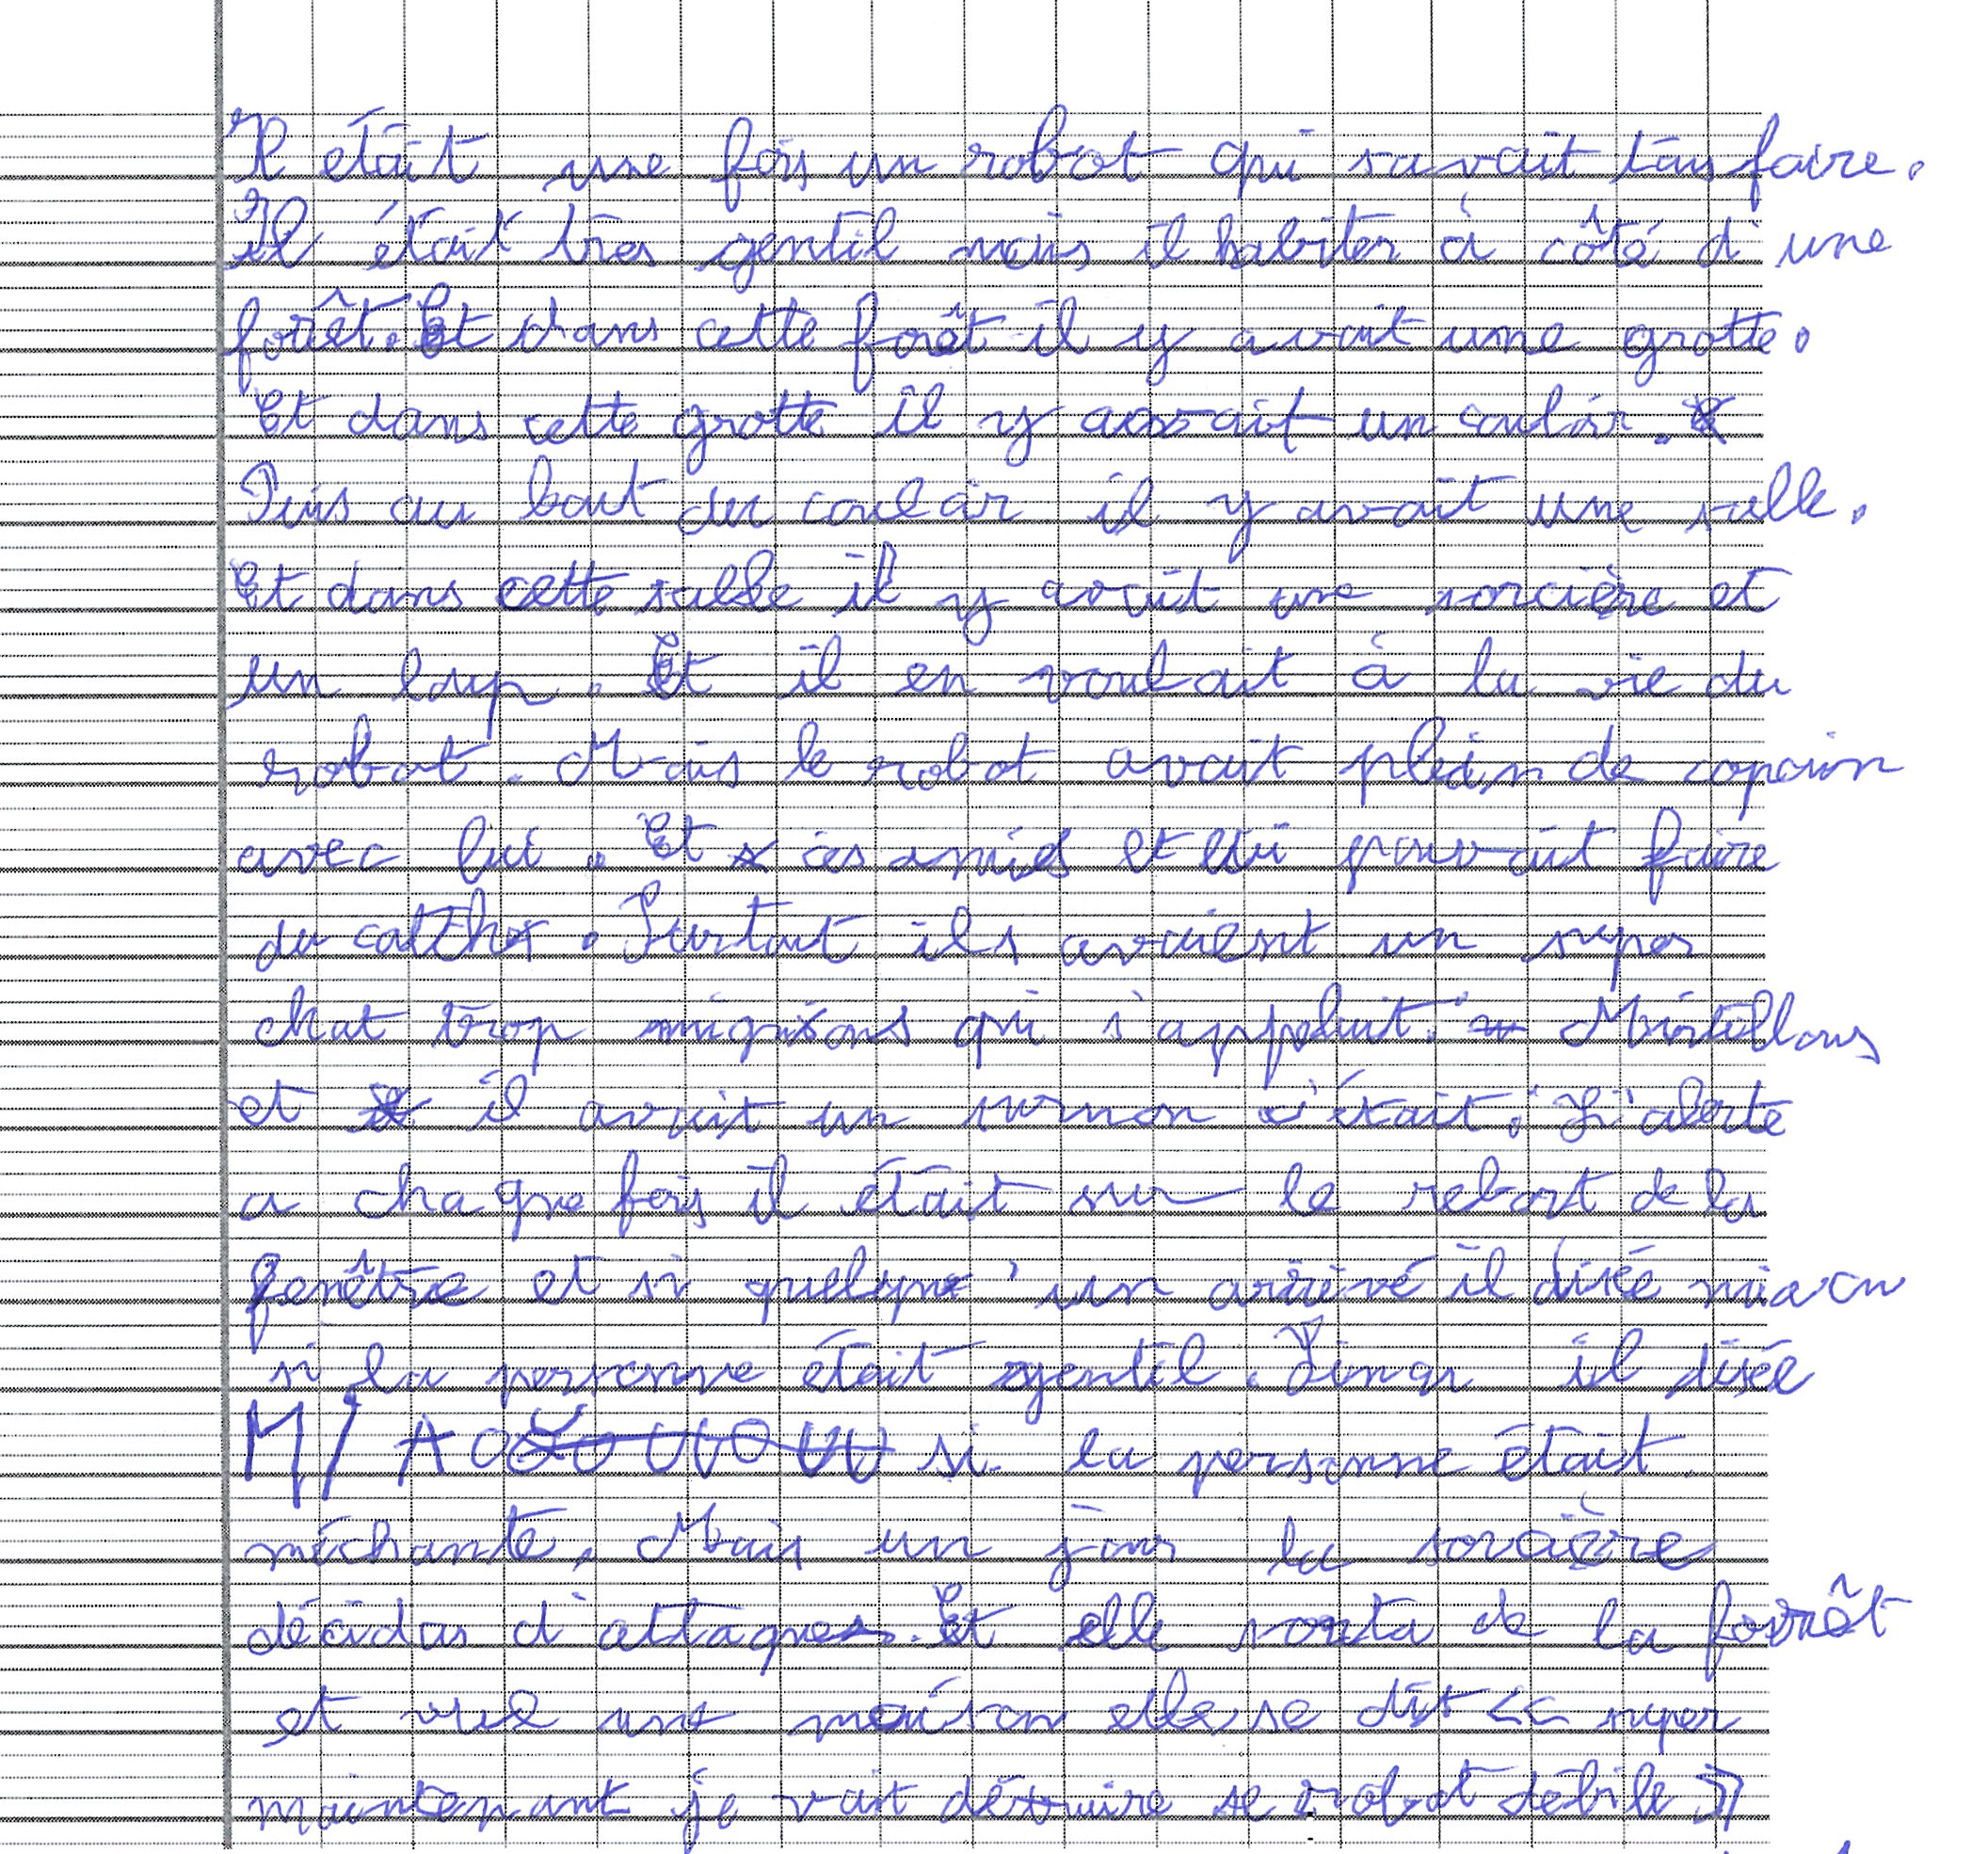 Il était une fois un robot qui savait tous faire.
Il était très gentil mais il habiter à côté d'une
forêt. Et dans cette forêt il y avait une grotte.
Et dans cette grotte il y avait un couloir.
Puis au bout du couloir il y avait une salle.
Et dans cette salle il y avait une sorcière et
un loup. Et il en voulait à la vie du
robot. Mais le robot avait plein de copain
avec lui. Et ces amies et lui pouvait faire
du catche. Surtout ils avaient un super
chat trop mignons qui s'appelait : Mistillons
et il avait un surnon c'était : Li'alerte
a chaque fois il était sur le rebort de la
fenêtre et si quelque'un arrivé il disée miaou
si la personne était gentil. Sinon il disée
MIAOOUUOUU si la personne était
méchante. Mais un jour la sorcière
décidas d'attaquer. Et elle sorta de la forrêt
et vue une maison elle se dit << super
maintenant je vait détruire se robot débile >>